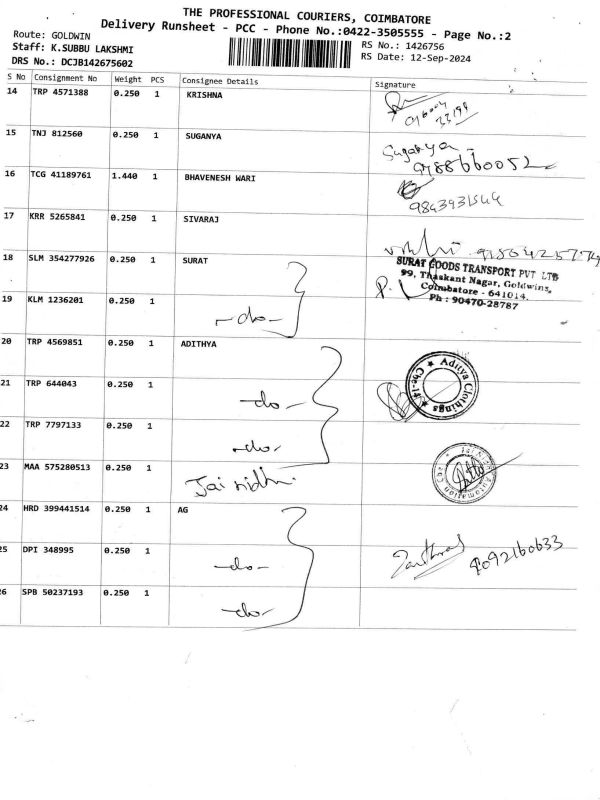 THE PROFESSIONAL COURIERS, COIMBATORE
Delivery Runsheet - PCC - Phone No.:0422-3505555 - Page No.:2
Route: GOLDWIN
RS No.: 1426756
Staff: K.SUBBU LAKSHMI
RS Date: 12-Sep-2024
DRS No.: DCJB142675602
S No Consignment No Weight PCS Consignee Details Signature
14 TRP 4571388 0.250 1 KRISHNA
15 TNJ 812560 0.250 1 SUGANYA Suganya
9788660052
16 TCG 41189761 1.440 1 BHAVENESH WARI
9843931544
17 KRR 5265841 0.250 1 SIVARAJ
18 SLM 354277926 0.250 1 SURAT
SURAT GOODS TRANSPORT PVT LTD
99, Thaskant Nagar, Goldwins,
Coimbatore - 641014.
Ph : 90470-28787
19 KLM 1236201 0.250 1 -do-
20 TRP 4569851 0.250 1 ADITHYA
Aditya Clothings
21 TRP 644043 0.250 1 -do-
22 TRP 7797133 0.250 1 -do-
23 MAA 575280513 0.250 1 Jai nidhi
24 HRD 399441514 0.250 1 AG
25 DPI 348995 0.250 1 -do-
26 SPB 50237193 0.250 1 -do-